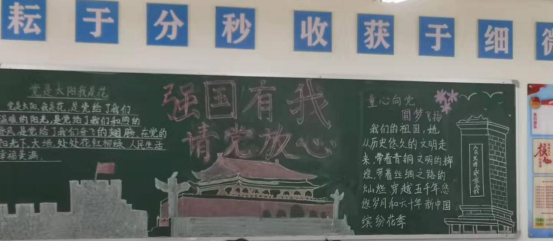 耘于分秒 收获于细
强国有我
请党放心
党是太阳我是花
党是太阳,我是花,是党给了我们
温暖的阳光,是党给了我们和煦的
春风,是党给了我们奋飞的翅膀,在党的
阳光下,大地,处处花红柳绿,人民生活
幸福美满。
童心向党
圆梦飞扬
我们的祖国,她
从历史悠久的文明走
来,带着青铜文明的辉
煌,带着丝绸之路的
灿烂,穿越五千年悠
悠岁月和六十年新中国
缤纷花季
人民英雄永垂不朽